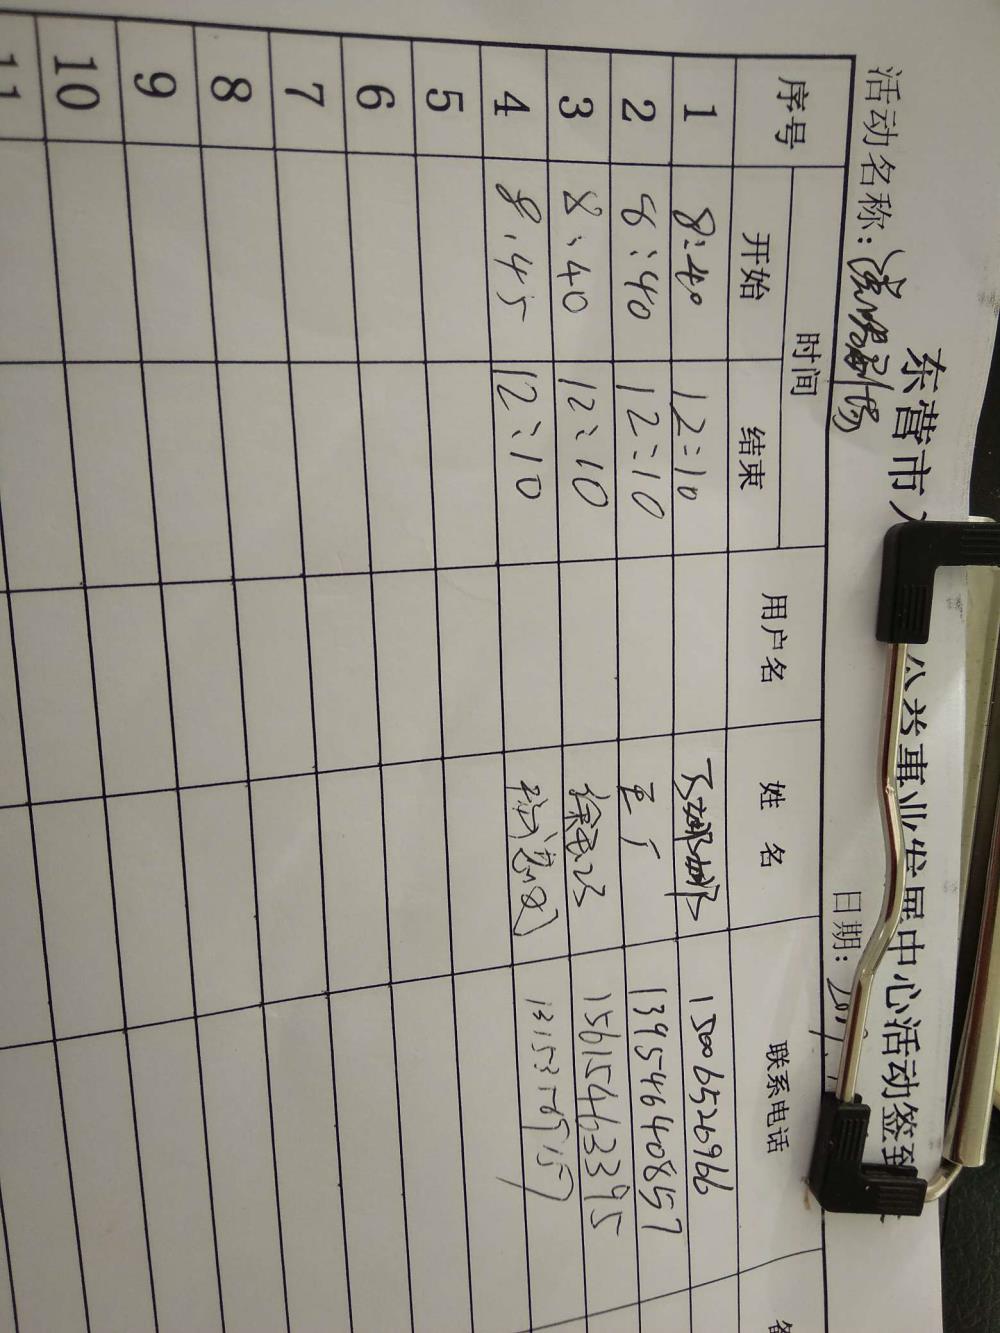 东营市 公益事业发展中心活动签到
活动名称:
日期:
序号 时间 用户名 姓名 联系电话 备
开始 结束
1 8:40 12:10 15006526966
2 8:40 12:10 王广 13954640857
3 8:40 12:10 15615463395
4 8:45 12:10
5
6
7
8
9
10
11